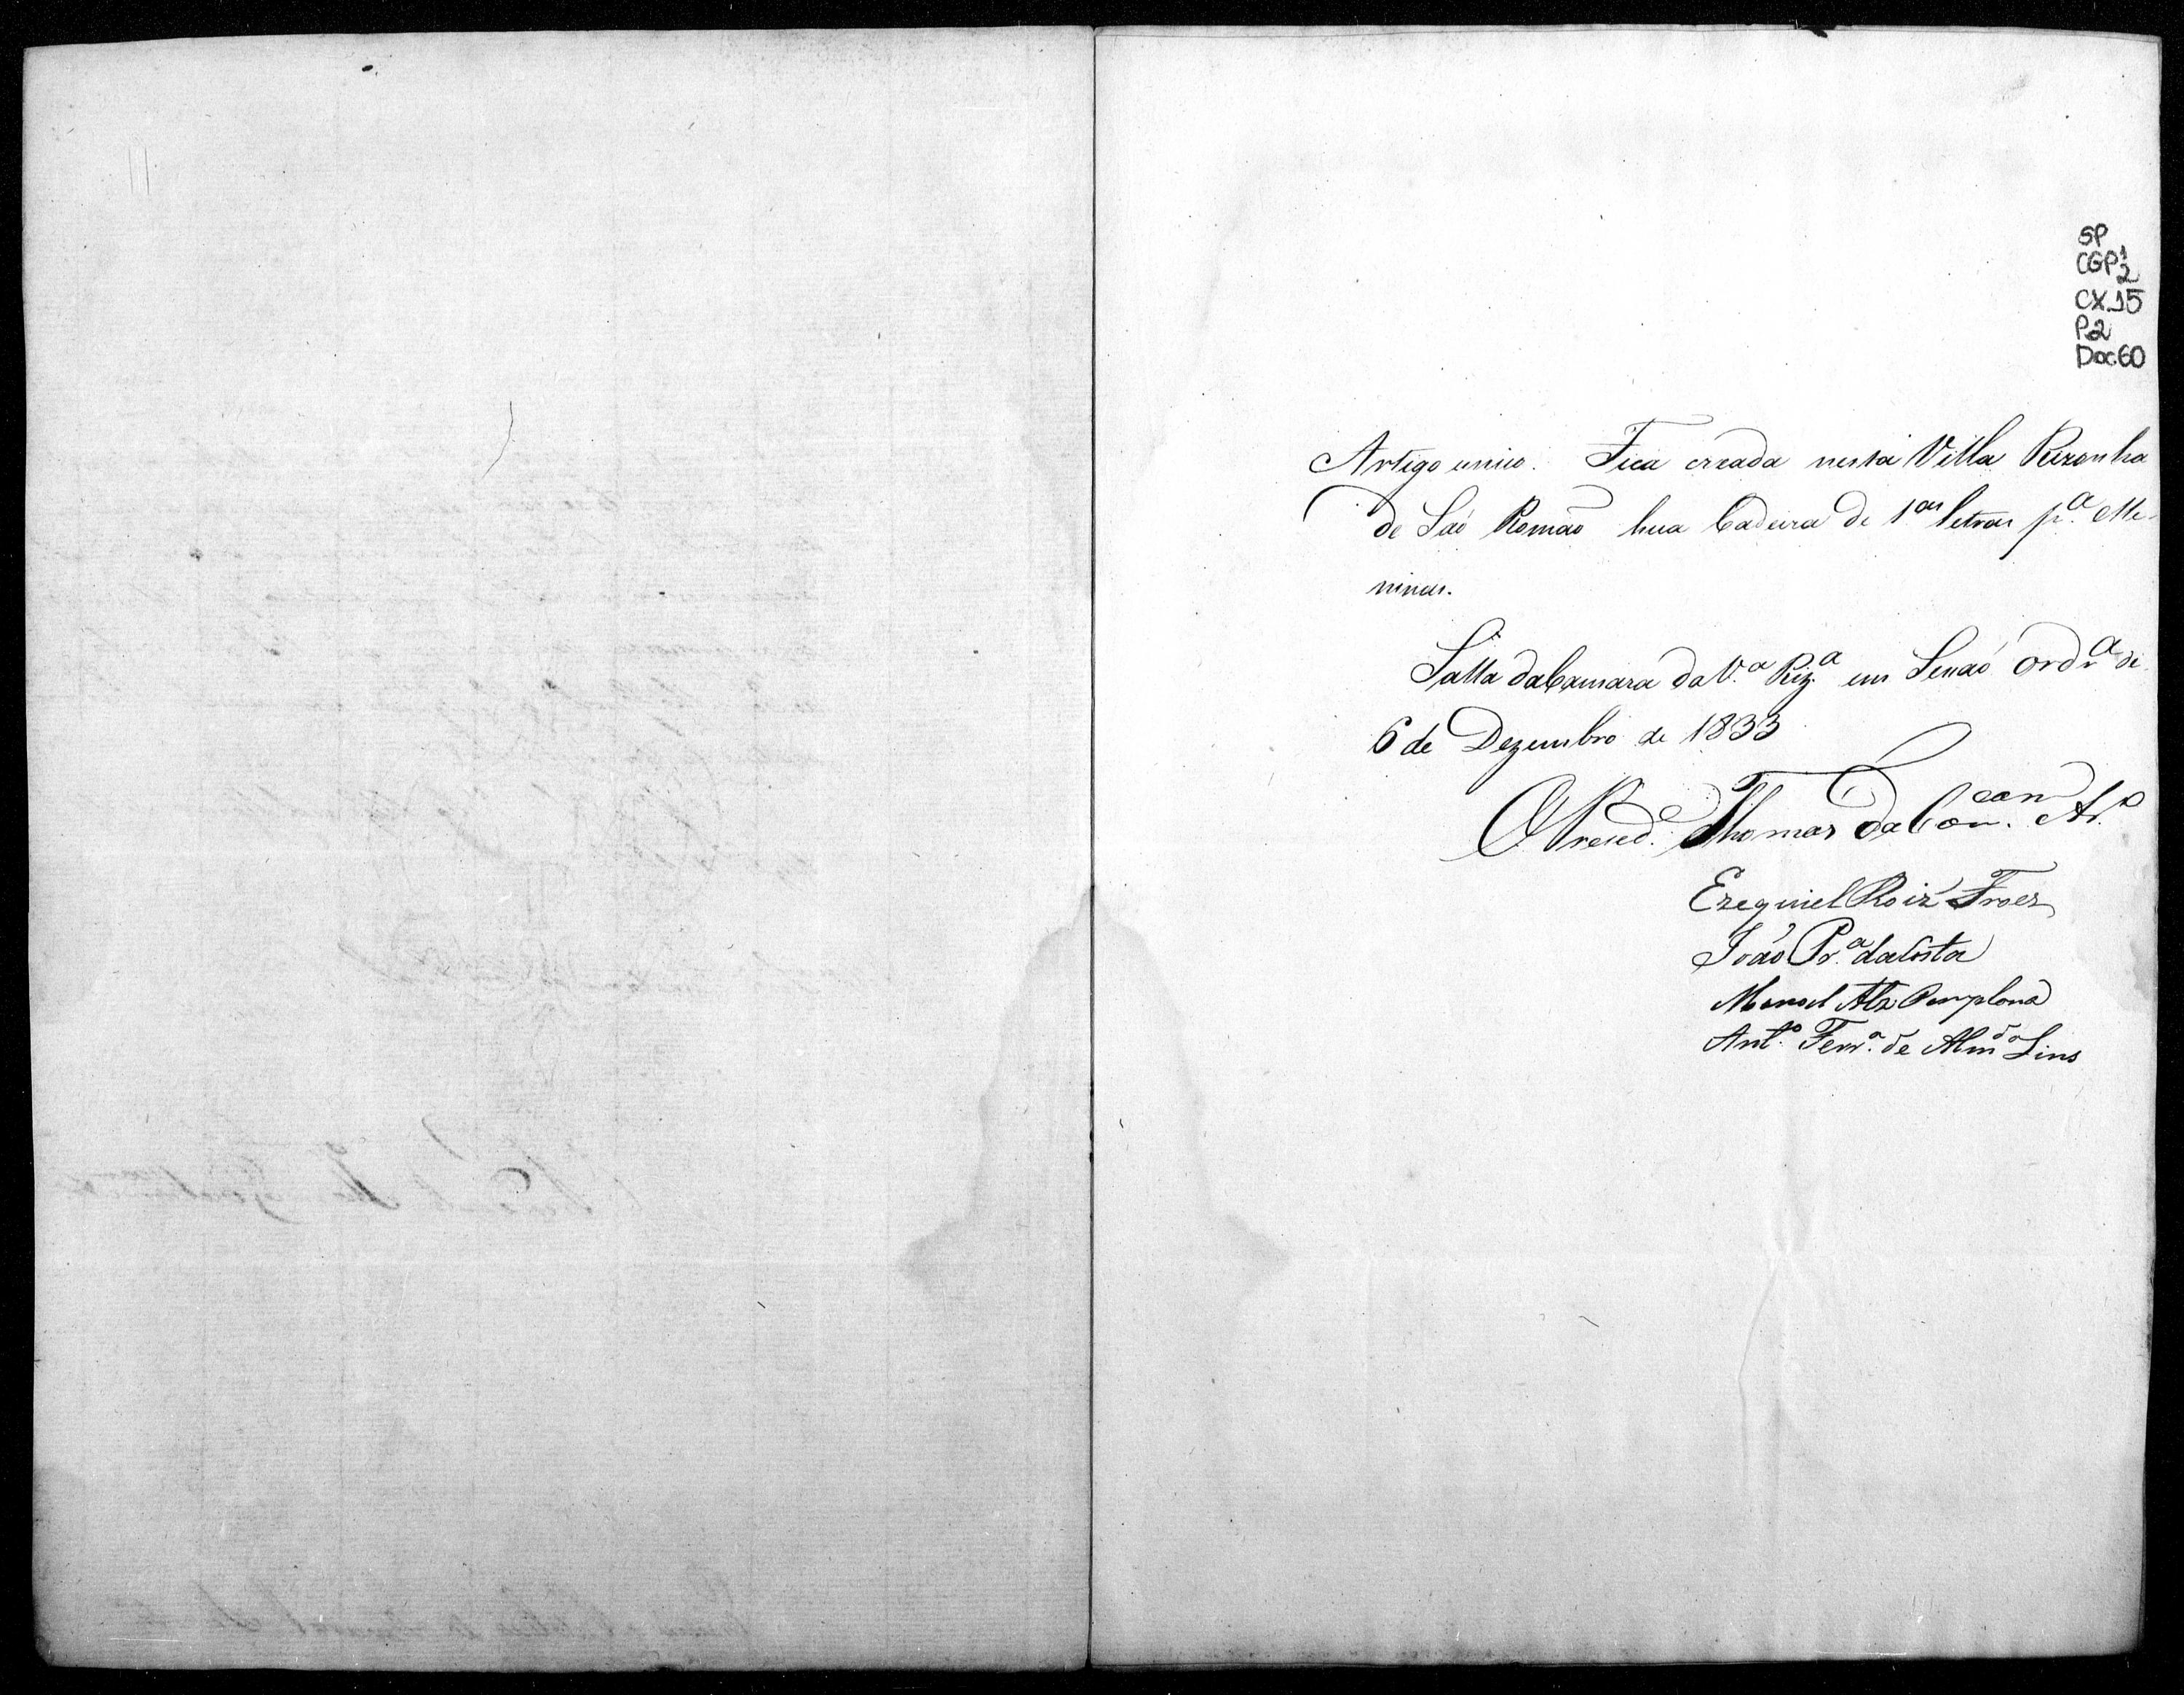 SP
CGP1
2
CX.15
P2
Doc60
Artigo unico. Fica creada nesta Villa Rizonha
de Saõ Romaõ hua Cadeira de 1as letras pa. Me-
ninas.
Salla da Camara da Va. Riza. em Sessaõ ordra. de
6 de Dezembro de 1833
O Presede. Thomas da Ar.o
Ezequiel Roiz Froes
João Pra. da Costa
Manoel Alz Pamplona
Anto. Ferra. de Almda Lins